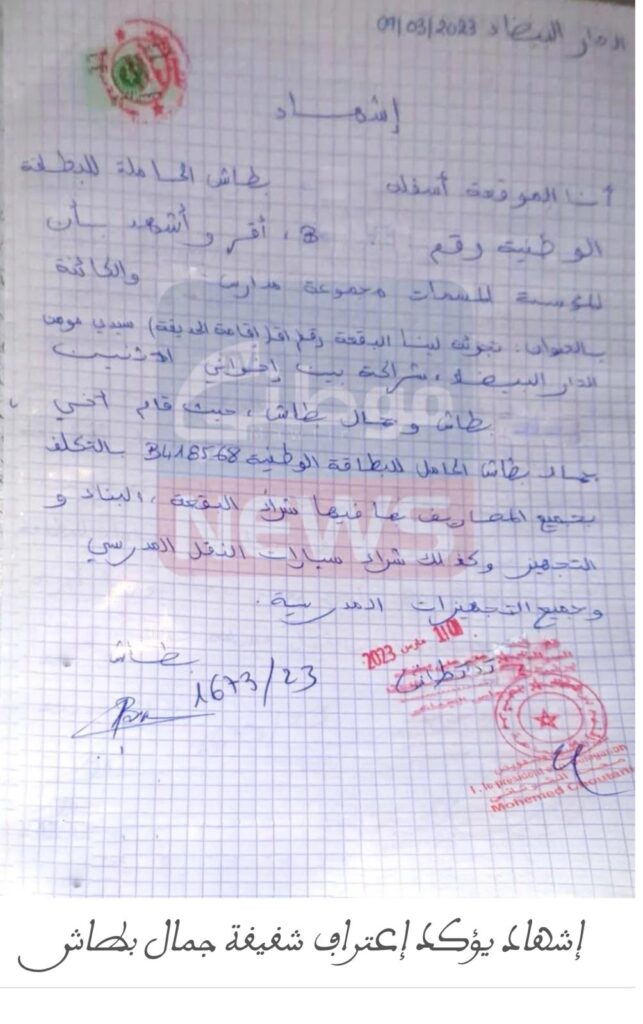 الدار البيضاء 09/03/2023
إشهاد
أنا الموقعة أسفله بطاش الحاملة للبطاقة
الوطنية رقم B ، أقر وأشهد بأن
المؤسسة المسمات مجموعة مدارس والكائنة
بالعنوان. تجزئة لينا البقعة رقم اقامة الحديقة) سيدي مومن
الدار البيضاء، شراكة بين إخواني الاثنين
بطاش وجمال بطاش، حيث قام أخي
جمال بطاش الحامل للبطاقة الوطنية B418568 بالتكلف
بجميع المصاريف بما فيها شراء البقعة، البناء و
التجهيز وكذلك شراء سيارات النقل المدرسي
وجميع التجهيزات المدرسية.
بطاش
1673/23
مارس 2023
NEWS
إشهاد يؤكد إعتراف شقيقة جمال بطاش